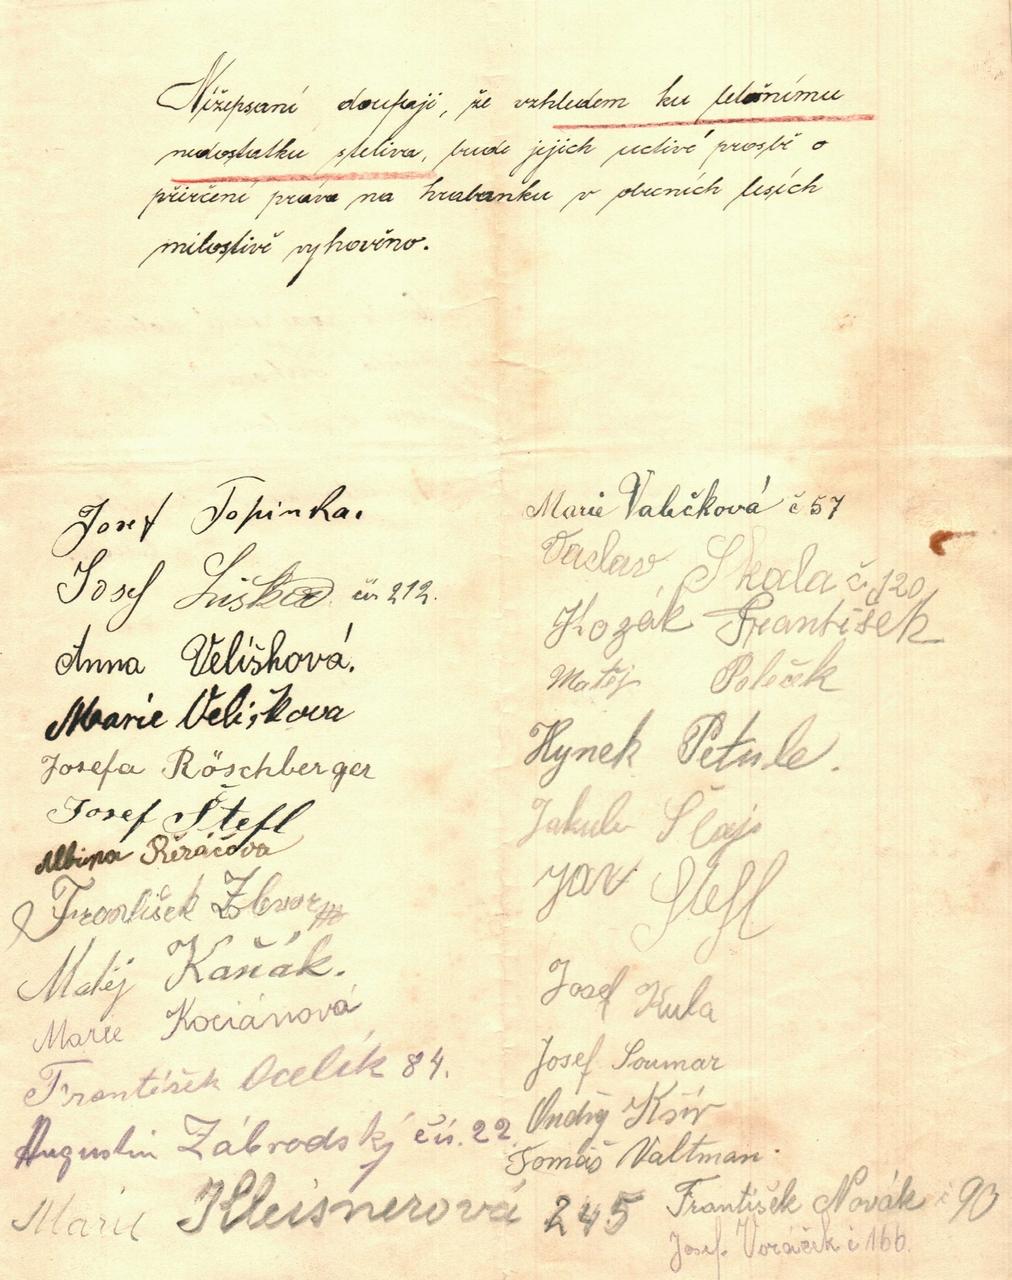 Nížepsaní doufají, že vzhledem ku letošnímu
nedostatku steliva, bude jejich uctivé prosbě o
přiřčení práva na hrabanku v obecních lesích
milostivě vyhověno.
Josef Topinka.
Josef Liška čís 212.
Anna Velišková.
Marie Veliškova
Josefa Röschberger
Josef Štefl
Albina Řeřáčova
František
Matěj Kaňák.
Marie Kociánová
František Ocelík 84.
Augustin Zábrodský čís. 22.
Marie Kleisnerová 245
Marie Valečková č 57
Václav Škoda č. 120
Kozák František
Matěj Poleček
Hynek Petule.
Jakub
Jan Štefl
Josef Kula
Josef Soumar
Ondřej Ksír
Tomáš Valtman.
František Novák č 90
Josef. Voráček č 166.